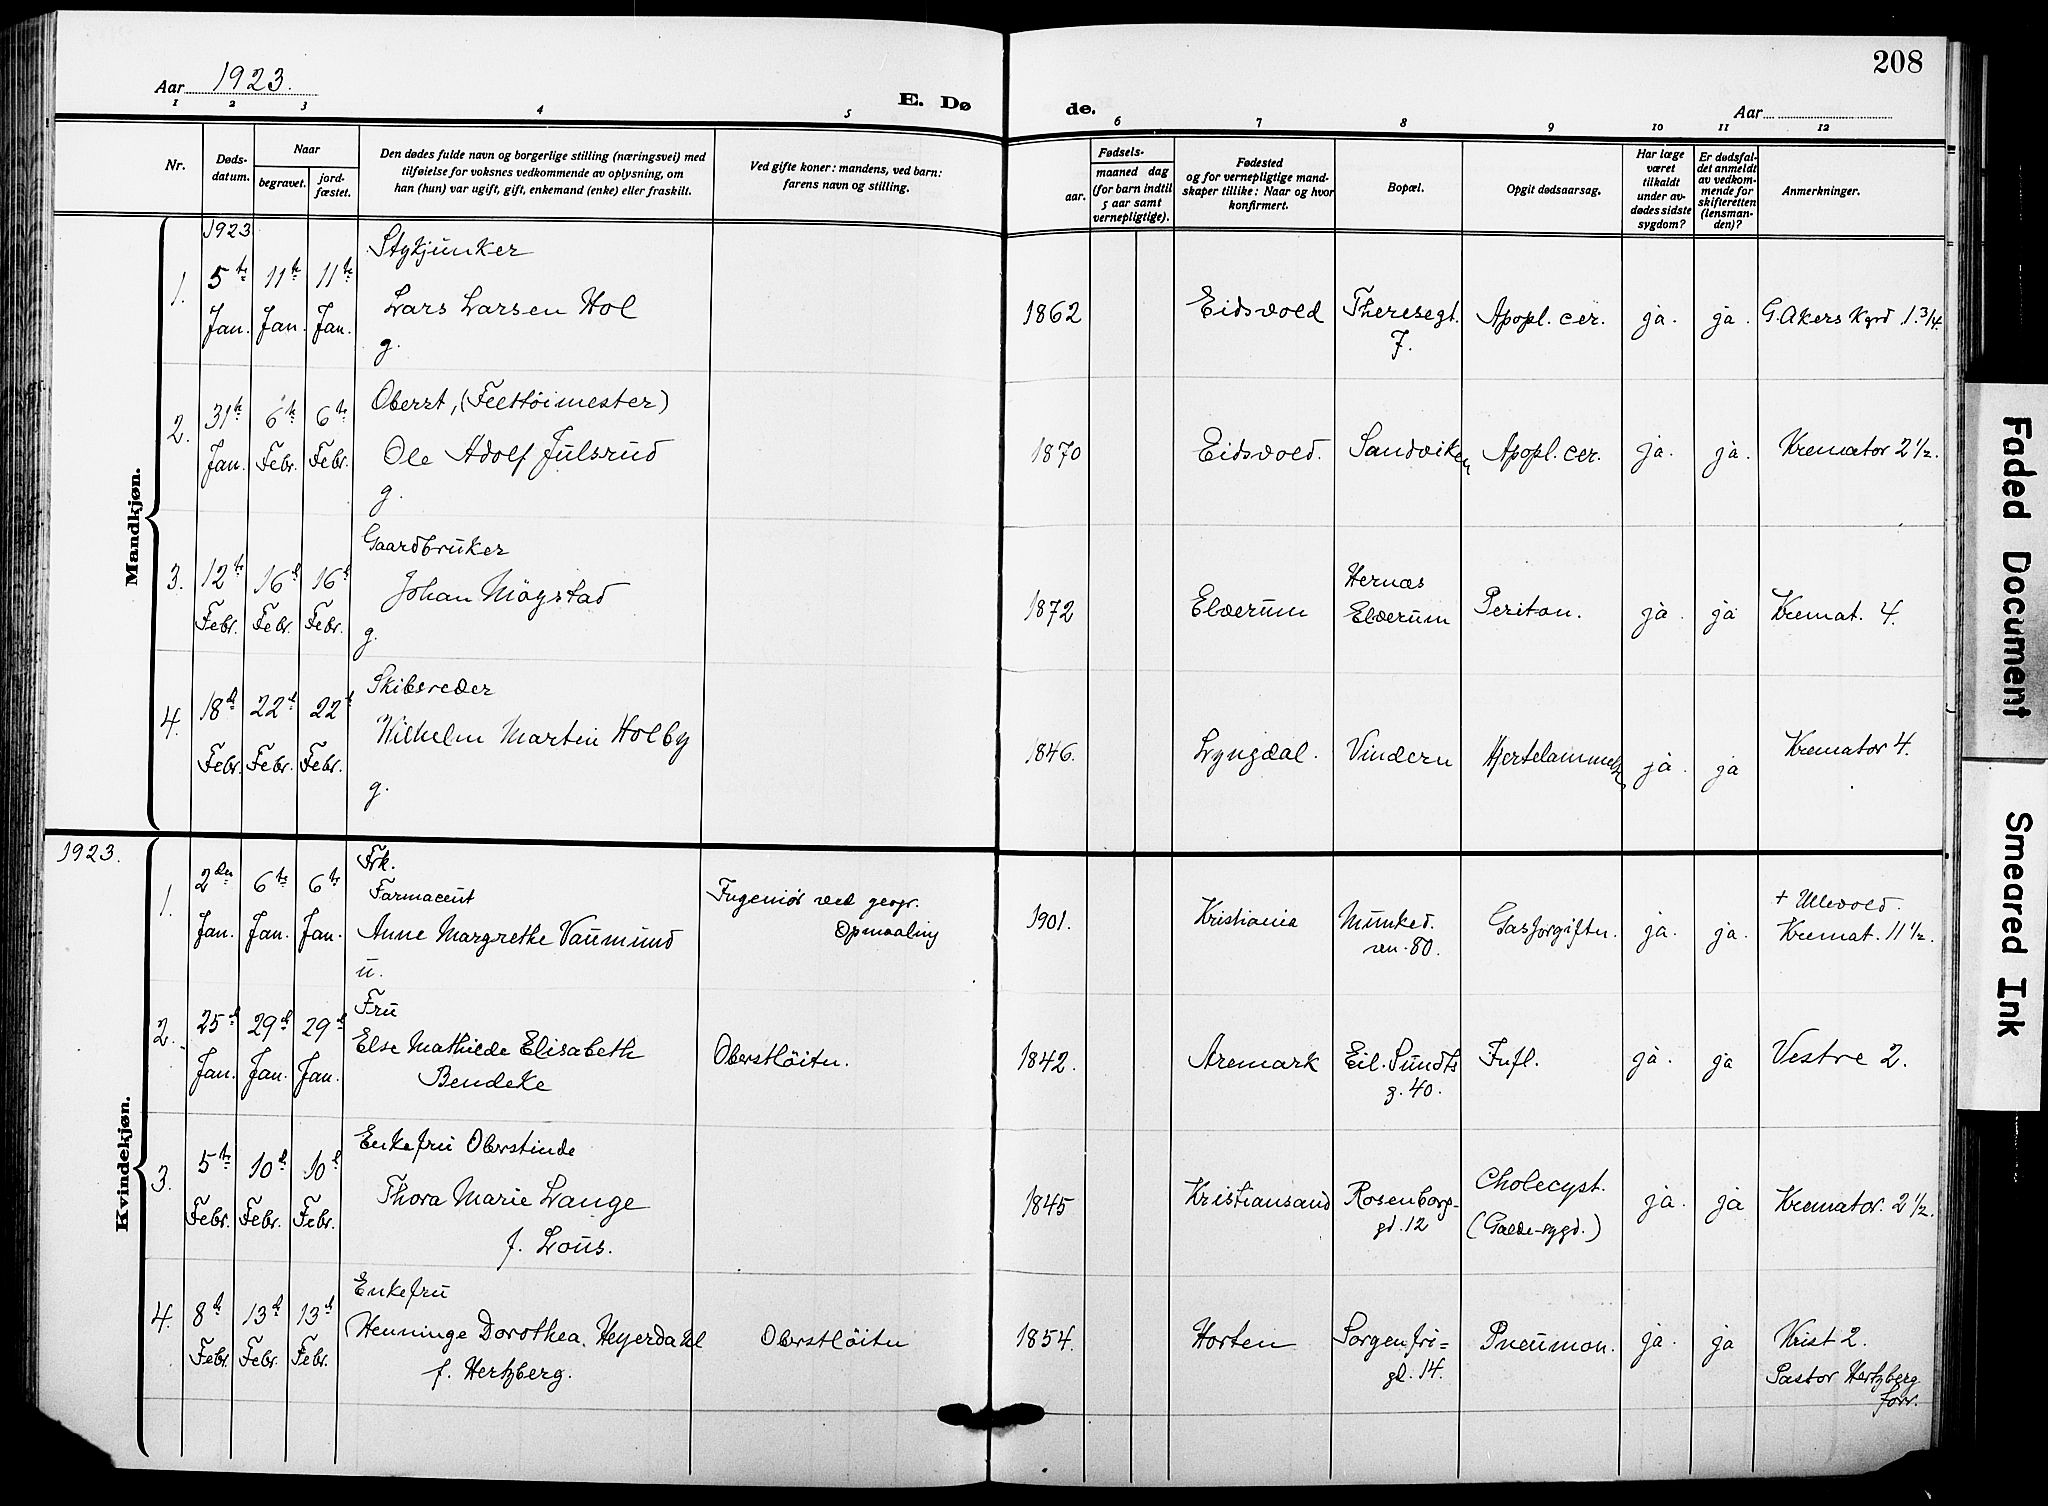 Aar 1923.
E. Dø
de.
208
Aar
1 2 3 4 5 6 7 8 9 10 11 12
Nr.
Døds-
datum.
Naar
begravet.
jord-
fæstet.
Den dødes fulde navn og borgerlige stilling (næringsvei) med
tilføielse for voksnes vedkommende av oplysning, om
han (hun) var ugift, gift, enkemand (enke) eller fraskilt.
Ved gifte koner: mandens, ved barn:
farens navn og stilling.
Fødsels-
aar.
maaned dag
(for barn indtil
5 aar samt
vernepligtige).
Fødested
og for vernepligtige mand-
skaper tillike: Naar og hvor
konfirmert.
Bopæl.
Opgit dødsaarsag.
Har læge
været
tilkaldt
under av-
dødes sidste
sygdom?
Er dødsfal-
det anmeldt
av vedkom-
mende for
skifteretten
(lensman-
den)?
Anmerkninger.
Mandkjøn.
1923
1. 5te Jan. 11te Jan. 11te Jan.
Stykjunker
Lars Larsen Hol
g.
1862 Eidsvold Theresegt. 7. Apopl. cer. ja. ja. G. Akers Kgrd 1.3/4.
2. 31te Jan. 6te Febr. 6te Febr.
Oberst, (Felttøimester)
Ole Adolf Julsrud
g.
1870 Eidsvold. Sandviken Apopl. cer. ja. ja. Kremator 2 1/2.
3. 12te Febr. 16d Febr. 16d Febr.
Gaardbruker
Johan Møystad
g.
1872 Elverum Hernæs Elverum Periton. ja. ja Kremat. 4.
4. 18d Febr. 22d Febr. 22d Febr.
Skibsreder
Wilhelm Martin Holby
g.
1846. Lyngdal. Vindern Hjertelammelse ja. ja Kremator 4.
Kvindekjøn.
1923.
1. 2den Jan. 6te Jan. 6te Jan.
Frk.
Farmaceut
Anne Margrethe Vaumund
u.
Ingeniør ved geogr.
Opmaaling
1901. Kristiania Munked.
vn. 80.
Gasforgiftn. ja. ja.
+ Ullevold.
Kremat. 11 1/2.
2. 25d Jan. 29d Jan. 29d Jan.
Fru
Else Mathilde Elisabeth
Bendeke
Oberstløitn.
1842. Aremark Eil. Sundts
g. 40.
Infl. ja. ja Vestre 2.
3. 5te Febr. 10d Febr. 10d Febr.
Enkefru Oberstinde
Thora Marie Lange
f. Lous.
1845 Kristiansand Rosenborg-
gd. 12
Cholecyst.
(Galde-sygd.)
ja. ja Kremator. 2 1/2.
4. 8d Febr. 13d Febr. 13d Febr.
Enkefru
Henninge Dorothea Heyerdahl
f. Hertzberg.
Oberstløitn
1854. Horten Sorgenfri=
gd. 14.
Pneumon. ja. ja Krist 2.
Pastor Hertzberg
forr.
Faded Document
Smeared Ink